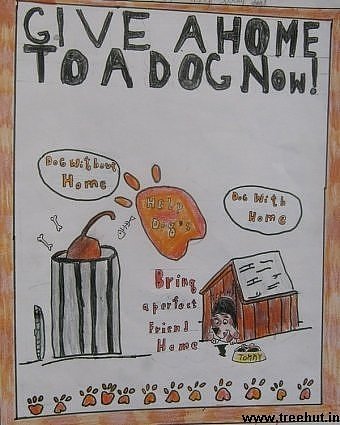 GIVE A HOME
TO A DOG NOW!
Dog Without
Home
Help
Dog's
Dog With
Home
Bring
a perfect
Friend
Home
TOMMY
www.treehut.in